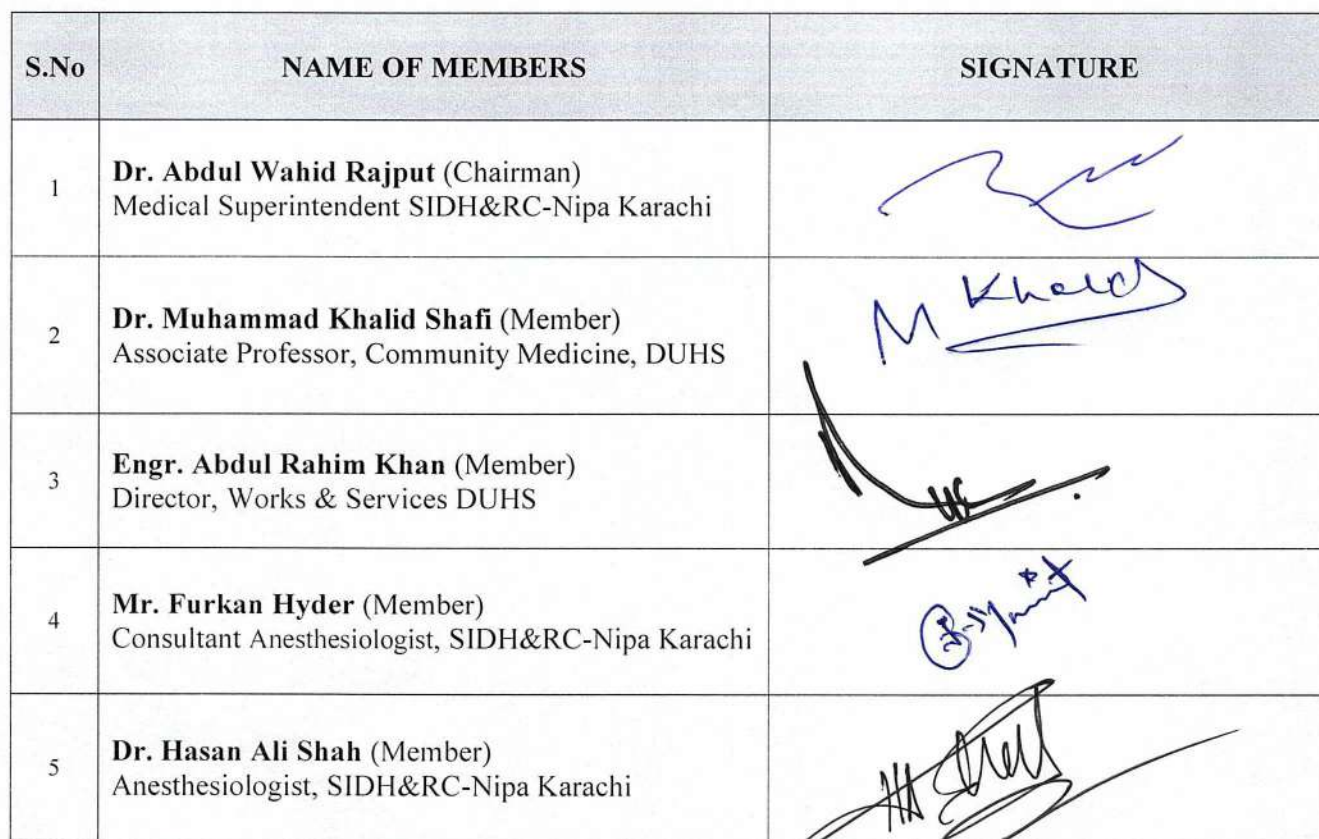 S.No NAME OF MEMBERS SIGNATURE
1 Dr. Abdul Wahid Rajput (Chairman)
Medical Superintendent SIDH&RC-Nipa Karachi
2 Dr. Muhammad Khalid Shafi (Member)
Associate Professor, Community Medicine, DUHS
M Khalid
3 Engr. Abdul Rahim Khan (Member)
Director, Works & Services DUHS
4 Mr. Furkan Hyder (Member)
Consultant Anesthesiologist, SIDH&RC-Nipa Karachi
5 Dr. Hasan Ali Shah (Member)
Anesthesiologist, SIDH&RC-Nipa Karachi